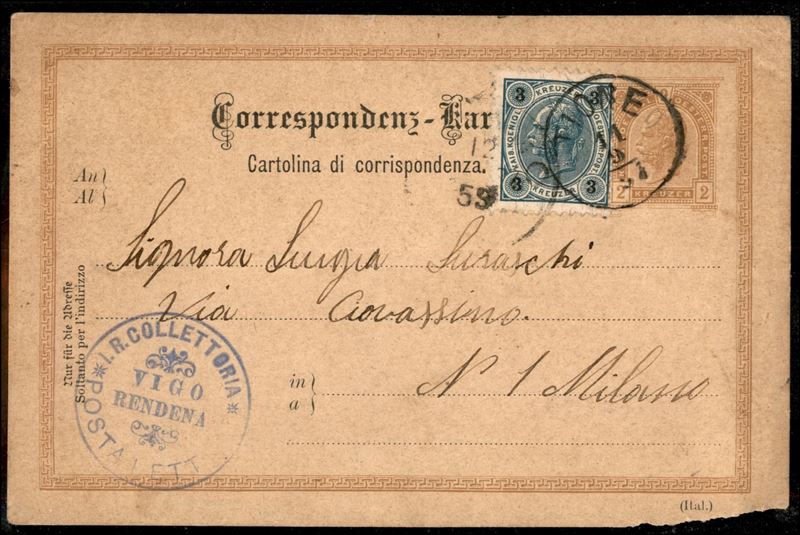 Correspondenz-Kar
Cartolina di corrispondenza.
3 KREUZER 3
3 KREUZER 3
2 KREUZER 2
TIONE
An
Al
Signora Luigia
Via
N 1 Milano
in
a
Nur für die Adresse
Soltanto per l'indirizzo
I.R. COLLETTORIA
VIGO
RENDENA
POSTALE
(Ital.)